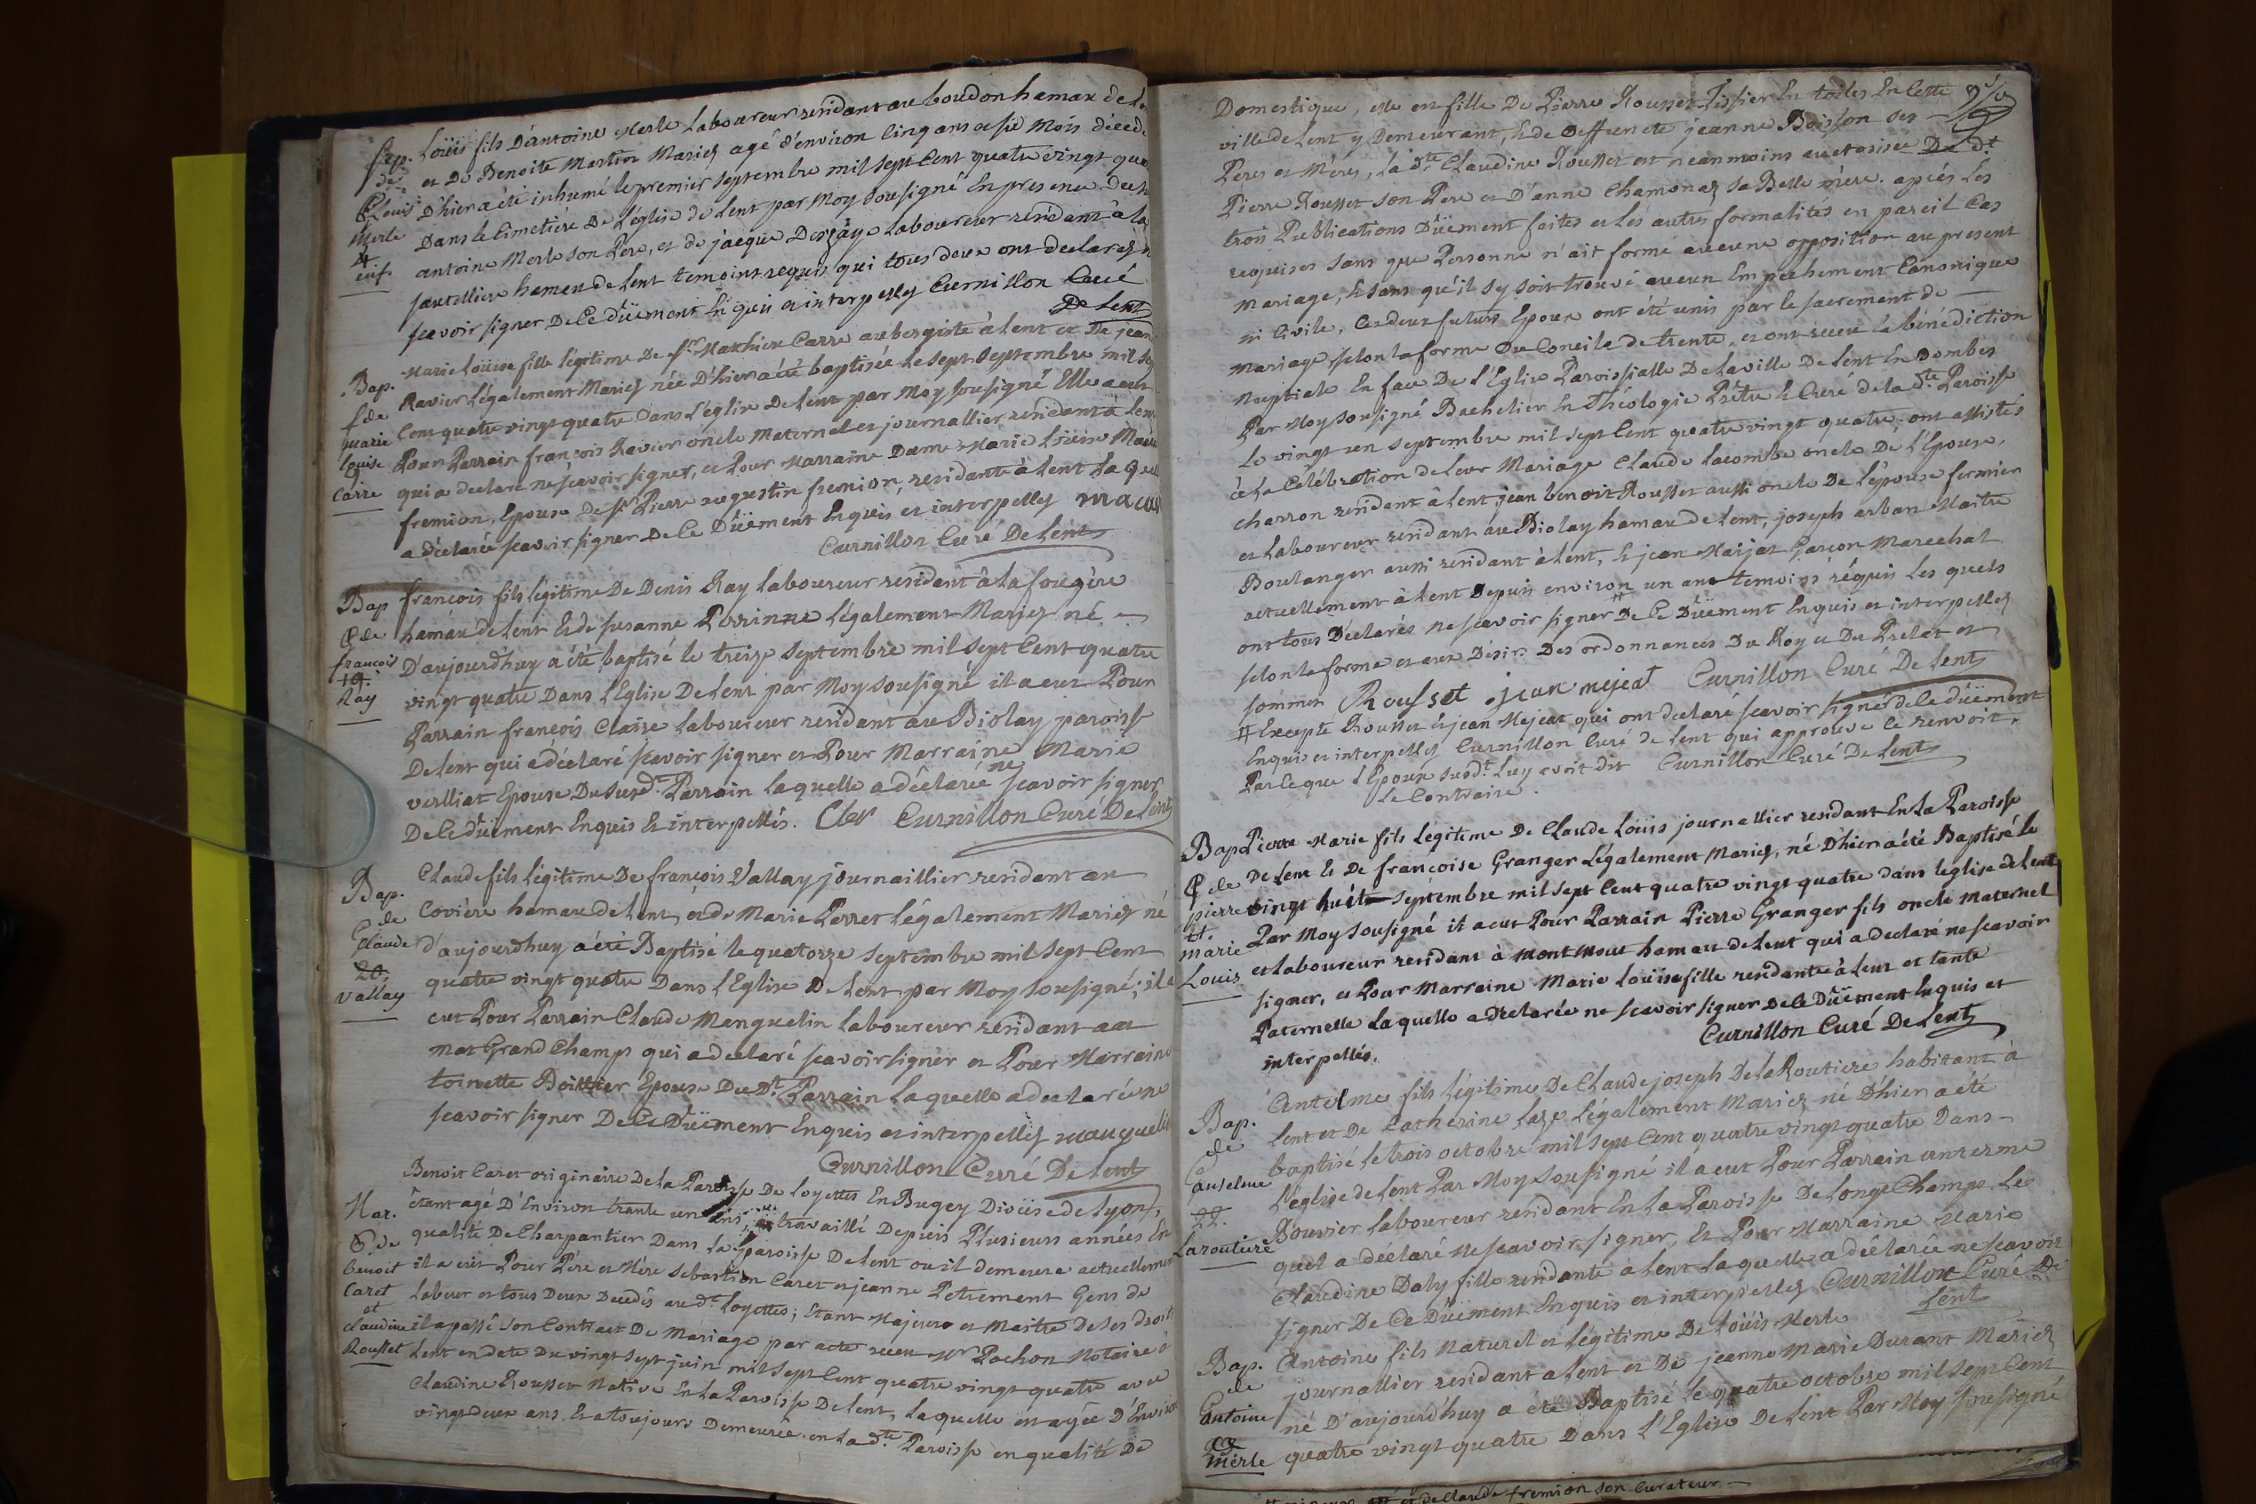 Sep.
de
Louis
Merle
enf.
Loüis fils D'antoine Merle Laboureur residant au boudon hamau de
et De Benoite Martin Mariez agé d'environ Cinq ans et six Mois décédé
D'hier a été inhumé le premier septembre mil sept Cent quatre vingt
Dans le Cimetière De L'église de Lent par Moy sousigné En presence
antoine Merle son Pere, et de jacque Laboureur residant à la
hamau de Lent temoins requis qui tous deux ont declarez
scavoir signer De Ce düement Enquis et interpellez Curnillon Curé
De Lent
Bap.
de
marie
louise
Carre
Marie Loüise fille légitime De sr Matthieu Carre aubergiste à Lent et De jeanne
Ravier Légalement Mariez née D'hier a été baptisée le sept septembre mil sept
Cent quatre vingt quatre Dans l'église De Lent par Moy sousigné Elle a eut
Pour Parrain françois Ravier oncle Maternel et journallier residant à Lent
qui a declaré ne scavoir signer, et Pour Marraine Dame Marie Loüise
fremion, Epouse De sr Pierre augustin fremion, residante à Lent La quelle
a déclarée scavoir signer De Ce Düement Enquis et interpellez
Curnillon Curé De Lent
Bap
de
françois
19.
Ray
françois fils légitime De Denis Ray laboureur residant à la fougère
hamau de Lent Et de susanne Perrinne Légalement Mariez né
D'aujourdhuy a été baptisé le treize septembre mil sept Cent quatre
vingt quatre Dans l'Eglise De Lent par Moy sousigné il a eut Pour
Parrain françois Claire laboureur residant au Biolay paroisse
De Lent qui a déclaré scavoir signer et Pour Marraine Marie
vulliat Epouse Du susdt Parrain laquelle a déclarée ne scavoir signer
De Ce düement Enquis Et interpellés. Cler Curnillon Curé De Lent
Bap.
de
Claude
20.
Vallay
Claude fils légitime De françois Vallay journaillier residant au
Covière hamau de Lent, et de Marie Perret légalement Mariez né
d'aujourdhuy a été Baptisé le quatorze septembre mil sept Cent
quatre vingt quatre Dans l'Eglise De Lent par Moy sousigné; il a
eut Pour Parrain Claude Menguelin laboureur residant au
mas Grand Champ qui a declaré scavoir signer et Pour Marraine
toinette Boithier Epouse Du Dt Parrain laquelle a declarée ne
scavoir signer De Ce Düement Enquis et interpellez
Curnillon Curé De Lent
Mar.
de
benoit
Caret
et
claudine
Rousset
Benoit Caret originaire De la Paroisse De loyettes En Bugey Diocèse de Lyon,
étant agé D'Environ trante un ans, a travaillé Depuis Plusieurs années En
qualité De Charpantier Dans la paroisse De Lent ou il demeure actuellement
il a eut Pour Pére et Mère sebastien Caret et jeanne Petrement Gens de
labeur et tous Deux Decedés au dt loyettes; Etant Majeur et Maitre De ses droits
il a passé son Contract De Mariage par acte receu Mr Pochon Notaire à
Lent en date Du vingt sept juin mil sept Cent quatre vingt quatre avec
Claudine Rousset Native En la Paroisse De Lent, laquelle est agée D'Environ
vingt deux ans Et a toujours Demeurée en la dte Paroisse en qualité De
Domestique, elle est fille De Pierre Rousset Tissier En toiles En Cette
ville de Lent y Demeurant, Et de Deffuncte jeanne Boisson ses
Peres et Méres, La dte Claudine Rousset est neanmoins auctorisée Du dt
Pierre Rousset son Pere et D'anne Chamonaz sa Belle mère. après Les
trois Publications Düement faites et Les autres formalités en pareil Cas
requises sans que Personne n'ait formé aucune opposition au present
mariage, Et sans qu'il sy soit trouvé aucun Empechement Canonique
ni Civile, Ces deux futurs Epoux ont été unis par le sacrement de
mariage, selon la forme Du Concile de trente, et ont receu la bénédiction
Nuptiale En face De l'Eglise Paroissialle De la ville De Lent En Dombes
Par Moy sousigné Bachelier En théologie Prêtre Et Curé de la dte Paroisse
Le vingt un septembre mil sept Cent quatre vingt quatre; ont assistés
à la Célébration de leur Mariage Claude lacombe oncle De l'Epouse,
charron residant à Lent, jean benoit Rousset aussi oncle De L'épouse fermier
et Laboureur residant au Biolay, hamau de Lent, joseph arban Maitre
Boulanger aussi residant à Lent, Et jean Maijat Garçon Marechal
actuellement à Lent Depuis environ un ans temoins réquis Les quels
ont tous Déclarés ne scavoir signer De Ce Düement Enquis et interpellez
selon la forme et aux Désirs Des ordonnances Du Roy et Du Prelat et
sommer Rousset jean mejeat Curnillon Curé De Lent
# Excepte Rousset Et jean Mejeat qui ont declaré scavoir signer de Ce düement
Enquis et interpellez Curnillon Curé de Lent qui approuve Ce renvoit.
Par Ce que l'Epoux susdt Luy avoit dit Curnillon Curé De Lent
Le Contraire.
Bap
de
pierre
21.
marie
Louis
Pierre Marie fils Légitime De Claude Loüis journallier residant En La Paroisse
De Lent Et De françoise Granger Légalement Mariez, né D'hier a été Baptisé le
vingt huit septembre mil sept Cent quatre vingt quatre dans leglise de Lent
Par Moy sousigné il a eut Pour Parrain Pierre Granger fils oncle maternel
et Laboureur residant à mont moux hamau de Lent qui a declaré ne scavoir
signer, et Pour Marraine Marie Loüise fille residante à Lent et tante
Paternelle Laquelle a declarée ne scavoir signer De Ce Düement Enquis et
interpellés. Curnillon Curé De Lent
Bap.
de
anselme
22.
Laroutiere
Antelme fils légitime De Claude joseph De la Routiere habitant à
Lent et De Catherine Légalement Mariez né D'hier a été
baptisé le trois octobre mil sept Cent quatre vingt quatre Dans
l'eglise de Lent Par Moy sousigné il a eut Pour Parrain antelme
Bouvier laboureur residant En La Paroisse De Longs Champs Le
quel a déclaré ne scavoir signer, Et Pour Marraine Marie
Claudine Daly fille residante a Lent laquelle a déclarée ne scavoir
signer De Ce Düement Enquis et interpellez Curnillon Curé De
Lent
Bap.
de
antoine
merle
Antoine fils Naturel et légitime De Loüis Merle
journallier residant a Lent et De jeanne Marie Durant Mariez
né D'aujourdhuy a été Baptisé le quatre octobre mil sept Cent
quatre vingt quatre Dans L'Eglise De Lent Par Moy sousigné
et de Claude fremion son Curateur